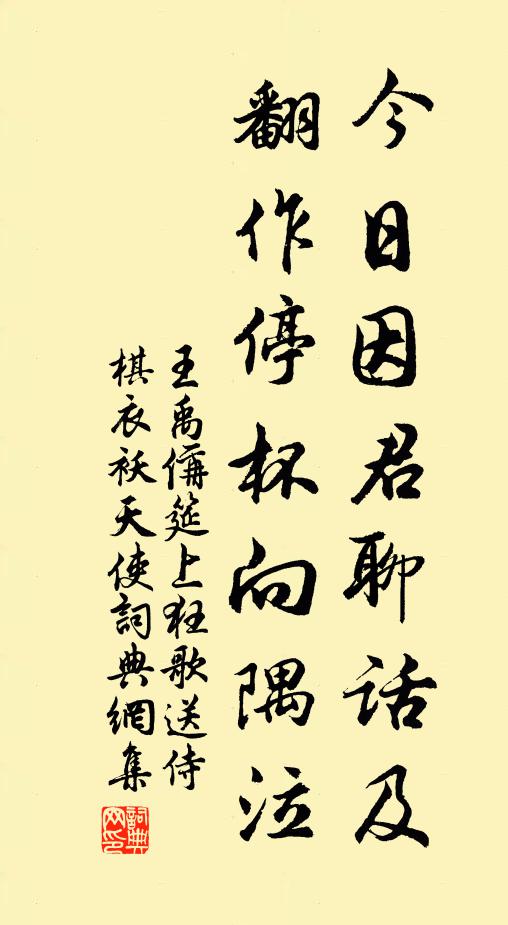 今日因君聊話及
翻作停杯向隅泣
王禹偁筵上狂歌送侍
棋衣袄天使詞典網集
詞典网印